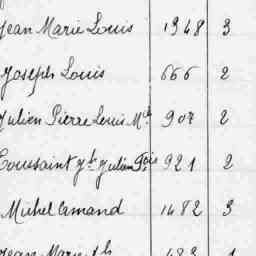 Jean Marie Louis 1948 3
Joseph Louis 666 2
Julien Pierre Louis M^ie 907 2
Toussaint J^h Julien F^ois 921 2
Michel Amand 1482 3
Jean Marie 483 1